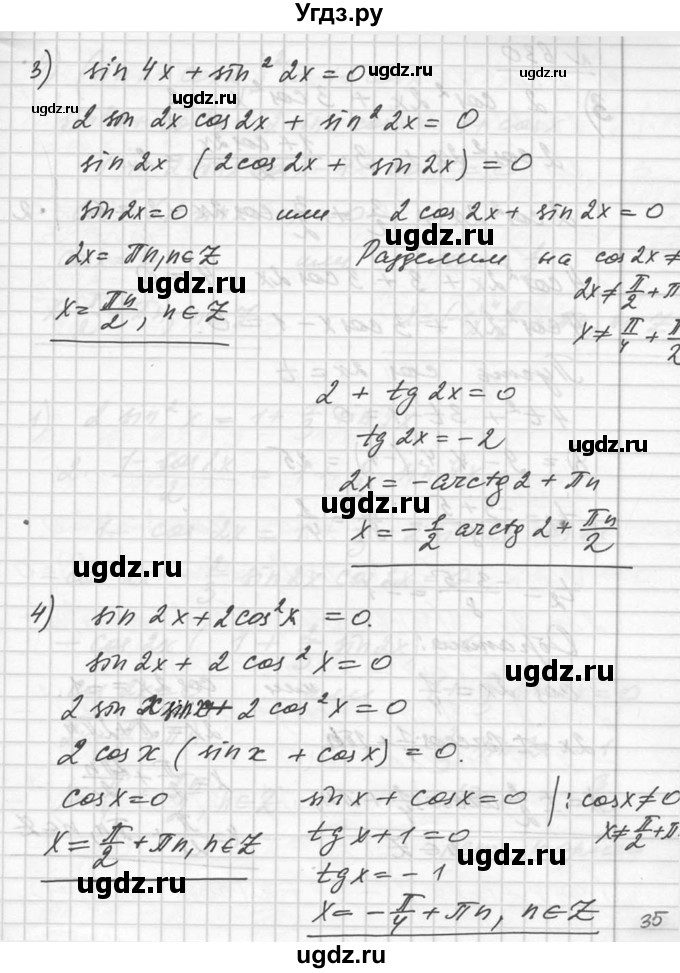 Угдз.ру
3) sin 4x + sin² 2x = 0
ugdz.ru
ugdz.ru
ugdz.ru
2 sin 2x cos2x + sin² 2x = 0
sin 2x (2cos 2x + sin 2x) = 0
sin 2x = 0 или 2 cos 2x + sin 2x = 0
ugdz.ru
2x = πn, n∈Z Разделим на cos 2x ≠
ugdz.ru
2x ≠ π/2 + π
x = πn/2, n∈Z
x ≠ π/4 + π/2
2 + tg 2x = 0
tg 2x = -2
ugdz.ru
2x = -arctg 2 + πn
ugdz.ru
x = -1/2 arctg 2 + πn/2
ugdz.ru
4) sin 2x + 2cos² x = 0.
sin 2x + 2 cos² x = 0
ugdz.ru
2 sin x + 2 cos² x = 0
ugdz.ru
2 cos x (sin x + cos x) = 0.
cos x = 0 sin x + cos x = 0 | : cos x ≠ 0
x = π/2 + πn, n∈Z tg x + 1 = 0 x ≠ π/2 + π
ugdz.ru
ugdz.ru
tg x = -1
x = -π/4 + πn, n∈Z
35
ugdz.ru